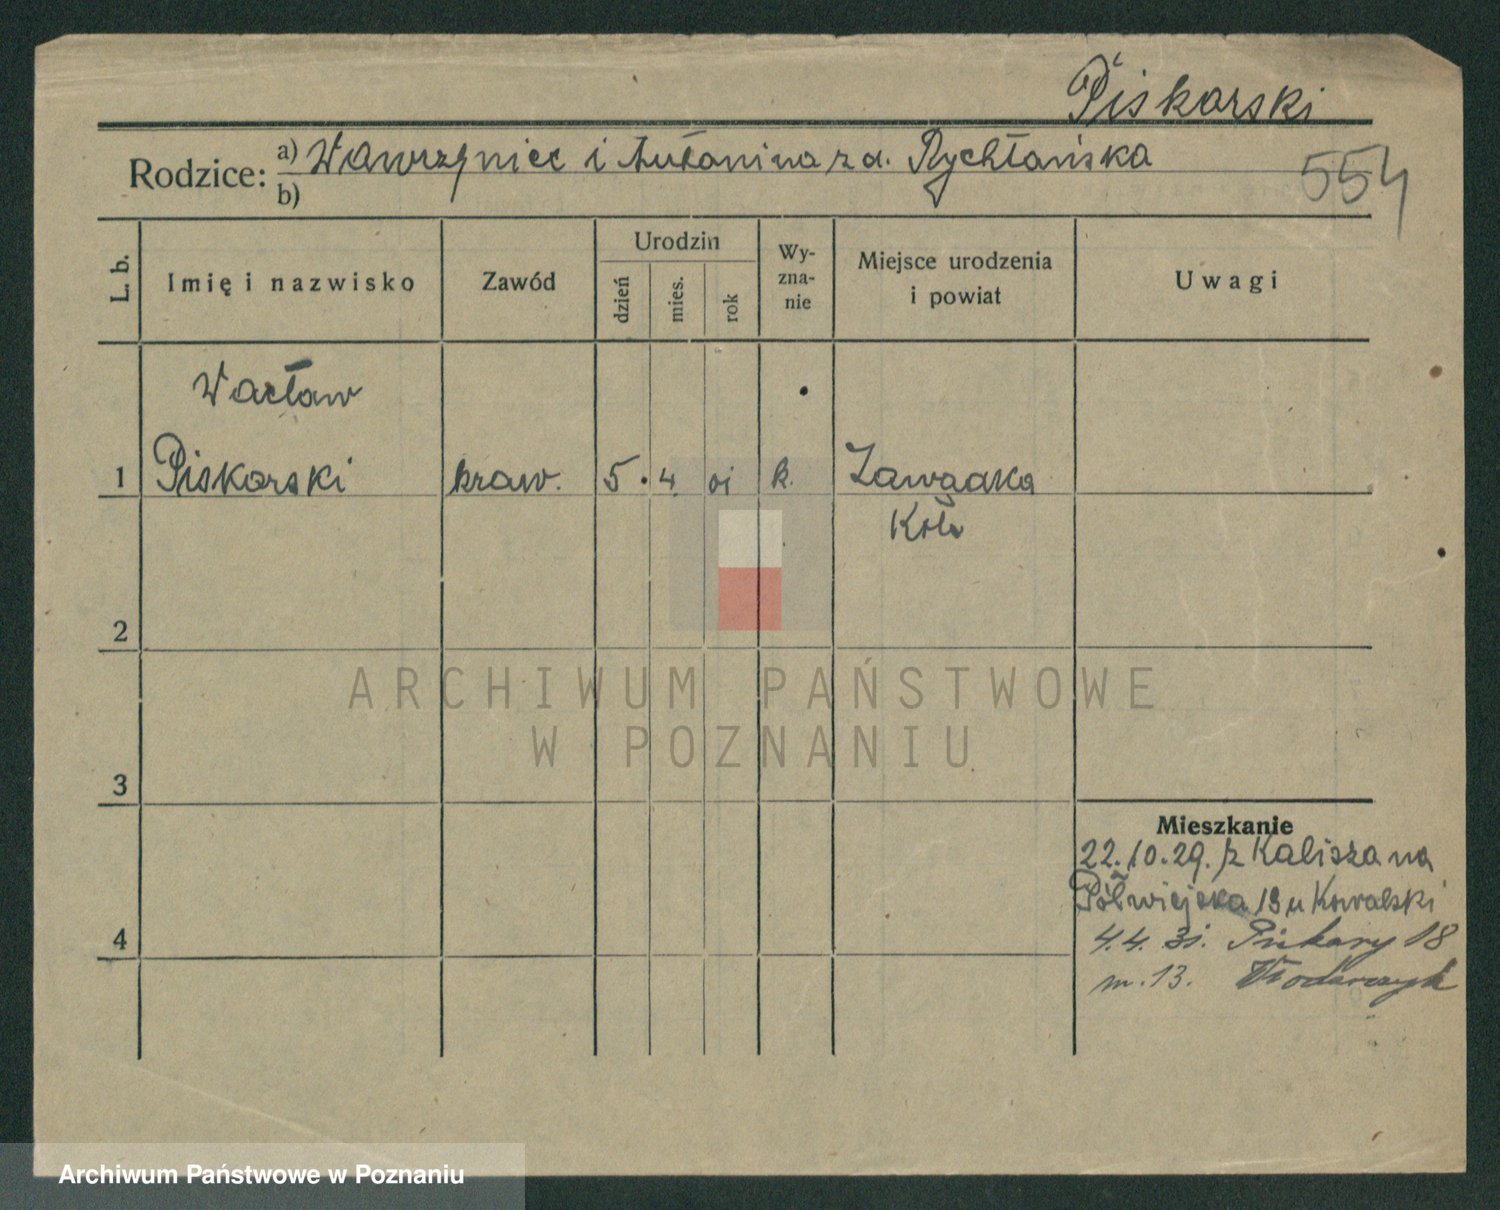 Piskorski
Rodzice: a) Wawrzyniec i Antonina z d. Rychłańska
b)
554
L. b.
Imię i nazwisko
Zawód
Urodzin
dzień
mies.
rok
Wy-
zna-
nie
Miejsce urodzenia
i powiat
Uwagi
Wacław
1 Piskorski kraw. 5. 4. 01 k. Zawadka
Koło
2
ARCHIWUM PAŃSTWOWE
W POZNANIU
3
Mieszkanie
22.10.29. z Kalisza na
Półwiejska 19 u Kowalski
4
4.4.31. Piekary 18
m. 13. Włodarczyk
Archiwum Państwowe w Poznaniu